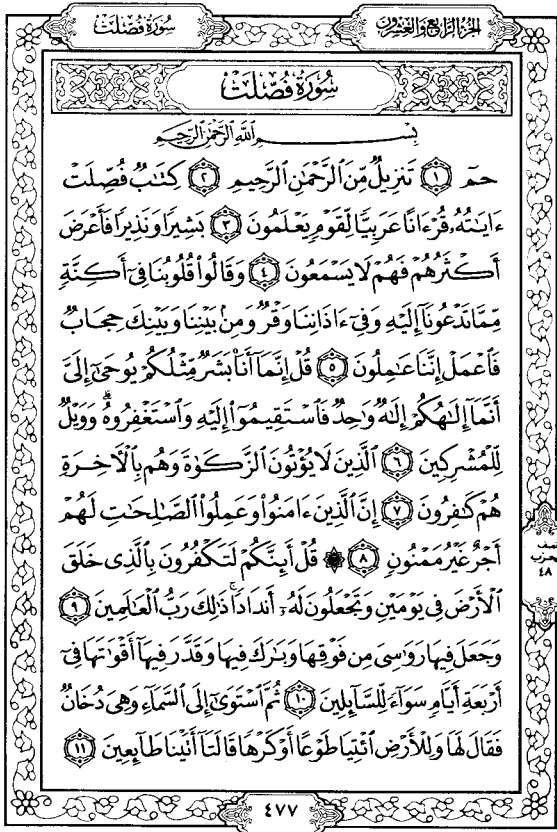 الجزء الرابع والعشرون
سورة فصلت
سُورَةُ فُصِّلَتْ
بِسْمِ ٱللَّهِ ٱلرَّحْمَٰنِ ٱلرَّحِيمِ
حمٓ ١ تَنزِيلٌ مِّنَ ٱلرَّحْمَٰنِ ٱلرَّحِيمِ ٢ كِتَٰبٌ فُصِّلَتْ
ءَايَٰتُهُۥ قُرْءَانًا عَرَبِيًّا لِّقَوْمٍ يَعْلَمُونَ ٣ بَشِيرًا وَنَذِيرًا فَأَعْرَضَ
أَكْثَرُهُمْ فَهُمْ لَا يَسْمَعُونَ ٤ وَقَالُوا۟ قُلُوبُنَا فِىٓ أَكِنَّةٍ
مِّمَّا تَدْعُونَآ إِلَيْهِ وَفِىٓ ءَاذَانِنَا وَقْرٌ وَمِنۢ بَيْنِنَا وَبَيْنِكَ حِجَابٌ
فَٱعْمَلْ إِنَّنَا عَٰمِلُونَ ٥ قُلْ إِنَّمَآ أَنَا۠ بَشَرٌ مِّثْلُكُمْ يُوحَىٰٓ إِلَىَّ
أَنَّمَآ إِلَٰهُكُمْ إِلَٰهٌ وَٰحِدٌ فَٱسْتَقِيمُوٓا۟ إِلَيْهِ وَٱسْتَغْفِرُوهُ ۗ وَوَيْلٌ
لِّلْمُشْرِكِينَ ٦ ٱلَّذِينَ لَا يُؤْتُونَ ٱلزَّكَوٰةَ وَهُم بِٱلْءَاخِرَةِ
هُمْ كَٰفِرُونَ ٧ إِنَّ ٱلَّذِينَ ءَامَنُوا۟ وَعَمِلُوا۟ ٱلصَّٰلِحَٰتِ لَهُمْ
أَجْرٌ غَيْرُ مَمْنُونٍ ٨ ۞ قُلْ أَئِنَّكُمْ لَتَكْفُرُونَ بِٱلَّذِى خَلَقَ
ٱلْأَرْضَ فِى يَوْمَيْنِ وَتَجْعَلُونَ لَهُۥٓ أَندَادًا ۚ ذَٰلِكَ رَبُّ ٱلْعَٰلَمِينَ ٩
وَجَعَلَ فِيهَا رَوَٰسِىَ مِن فَوْقِهَا وَبَٰرَكَ فِيهَا وَقَدَّرَ فِيهَآ أَقْوَٰتَهَا فِىٓ
أَرْبَعَةِ أَيَّامٍ سَوَآءً لِّلسَّآئِلِينَ ١٠ ثُمَّ ٱسْتَوَىٰٓ إِلَى ٱلسَّمَآءِ وَهِىَ دُخَانٌ
فَقَالَ لَهَا وَلِلْأَرْضِ ٱئْتِيَا طَوْعًا أَوْ كَرْهًا قَالَتَآ أَتَيْنَا طَآئِعِينَ ١١
الحزب
٤٨
٤٧٧